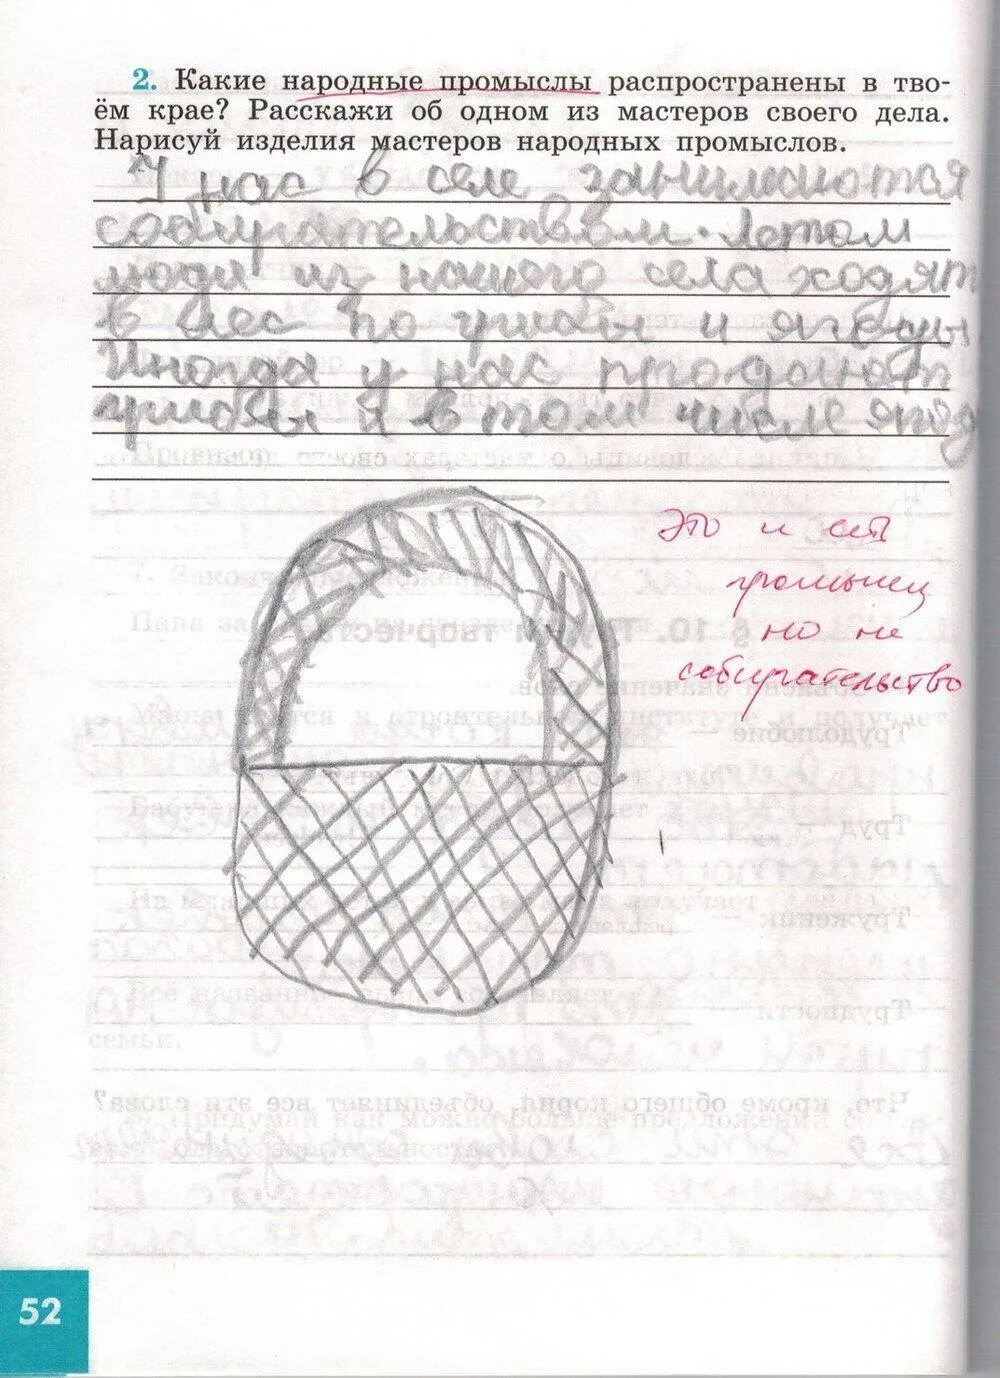 2. Какие народные промыслы распространены в тво-
ём крае? Расскажи об одном из мастеров своего дела.
Нарисуй изделия мастеров народных промыслов.
У нас в селе занимаются
собирательстввм. Летом
люди из нашего села ходят
в лес по грибы и ягоды.
Иногда у нас продают
грибы и в том числе ягод
это и ест
промысец
но не
собирательство
52